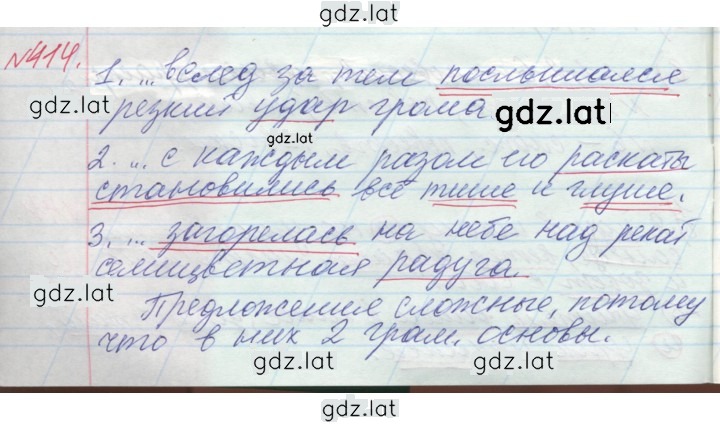 gdz.lat
№414.
1. ... вслед за тем послышался
gdz.lat
резкий удар грома
gdz.lat
gdz.lat
2. ... с каждым разом его раскаты
становились всё тише и глуше.
3. ... загорелась на небе над рекой
семицветная радуга.
gdz.lat
Предложения сложные, потому
что в них 2 грам. основы.
gdz.lat
gdz.lat
gdz.lat